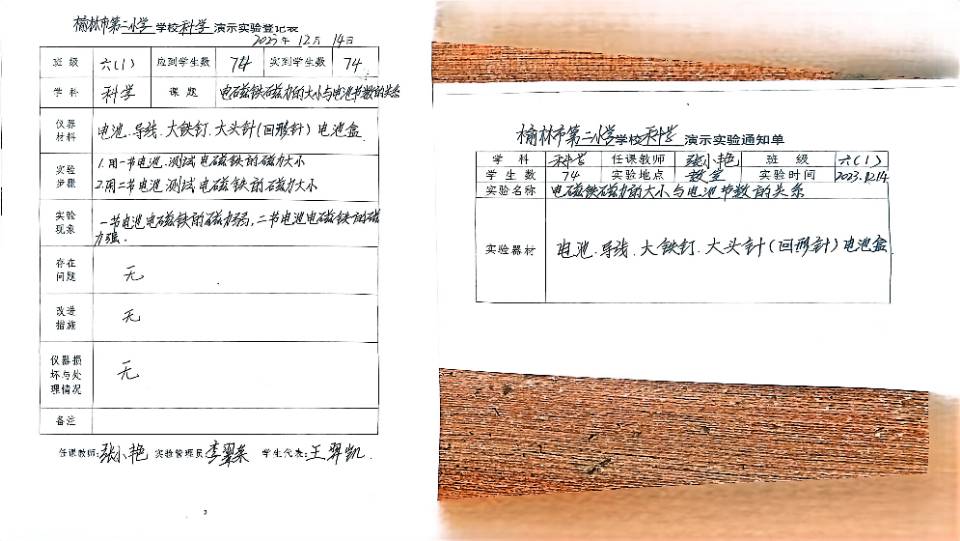 榆林市第二小学学校科学演示实验登记表
2023年12月14日
班级 六(1) 应到学生数 74 实到学生数 74
学科 科学 课题 电磁铁磁力的大小与电池节数的关系
仪器材料 电池.导线.大铁钉.大头针(回形针)电池盒
实验步骤 1.用一节电池.测试电磁铁的磁力大小
2.用二节电池.测试电磁铁的磁力大小
实验现象 一节电池电磁铁的磁力弱,二节电池电磁铁的磁
力强.
存在问题 无
改进措施 无
仪器损坏与处理情况 无
备注
任课教师:张小艳 实验管理员: 学生代表:王羿凯
2
榆林市第二小学学校科学演示实验通知单
学科 科学 任课教师 张小艳 班级 六(1)
学生数 74 实验地点 教室 实验时间 2023.12.14
实验名称 电磁铁磁力的大小与电池节数的关系
实验器材 电池.导线.大铁钉.大头针(回形针)电池盒